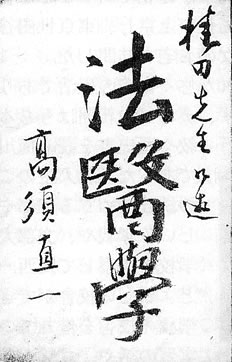 桂田先生口述
法醫學
高須直一